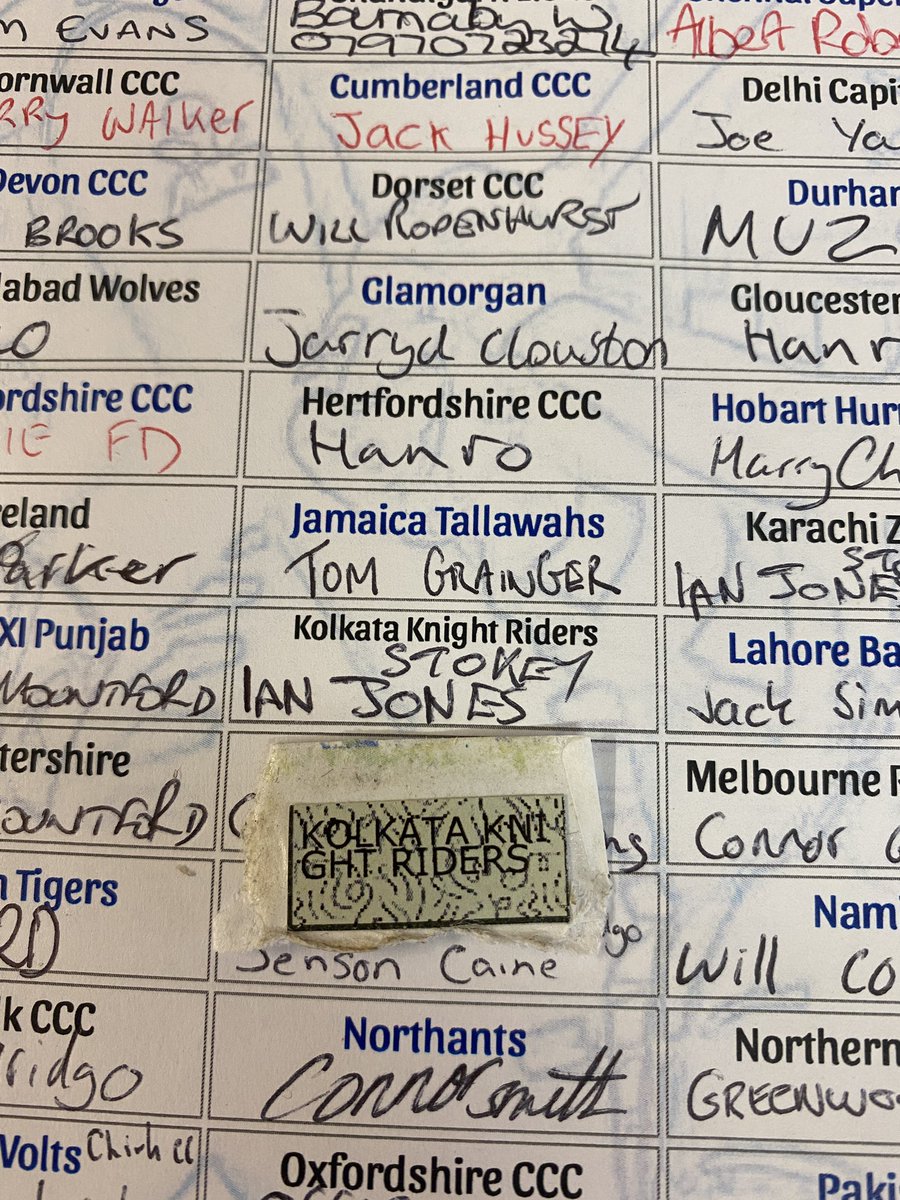 M EVANS
Barnaby W
07970723274
Albert Rob
ornwall CCC
Cumberland CCC
Delhi Capi
RRY WALKER
JACK HUSSEY
Joe Ya
Devon CCC
Dorset CCC
Durham
BROOKS
WILL RODENHURST
MUZ
abad Wolves
Glamorgan
Gloucester
Jarryd Clouston
Hanr
ordshire CCC
Hertfordshire CCC
Hobart Hurr
IE FD
Hanro
Harry Ch
reland
Jamaica Tallawahs
Karachi Z
Parker
TOM GRAINGER
IAN JONES
XI Punjab
Kolkata Knight Riders
Lahore Ba
MOUNTFORD
STOKEY
IAN JONES
Jack Sim
tershire
Melbourne R
OUNTFORD
KOLKATA KNI
GHT RIDERS
Connor
n Tigers
Nami
RD
Jenson Caine
Will Co
k CCC
Northants
Northern
ridgo
Connor Smith
GREENWO
Volts
Chirk CC
Oxfordshire CCC
Paki